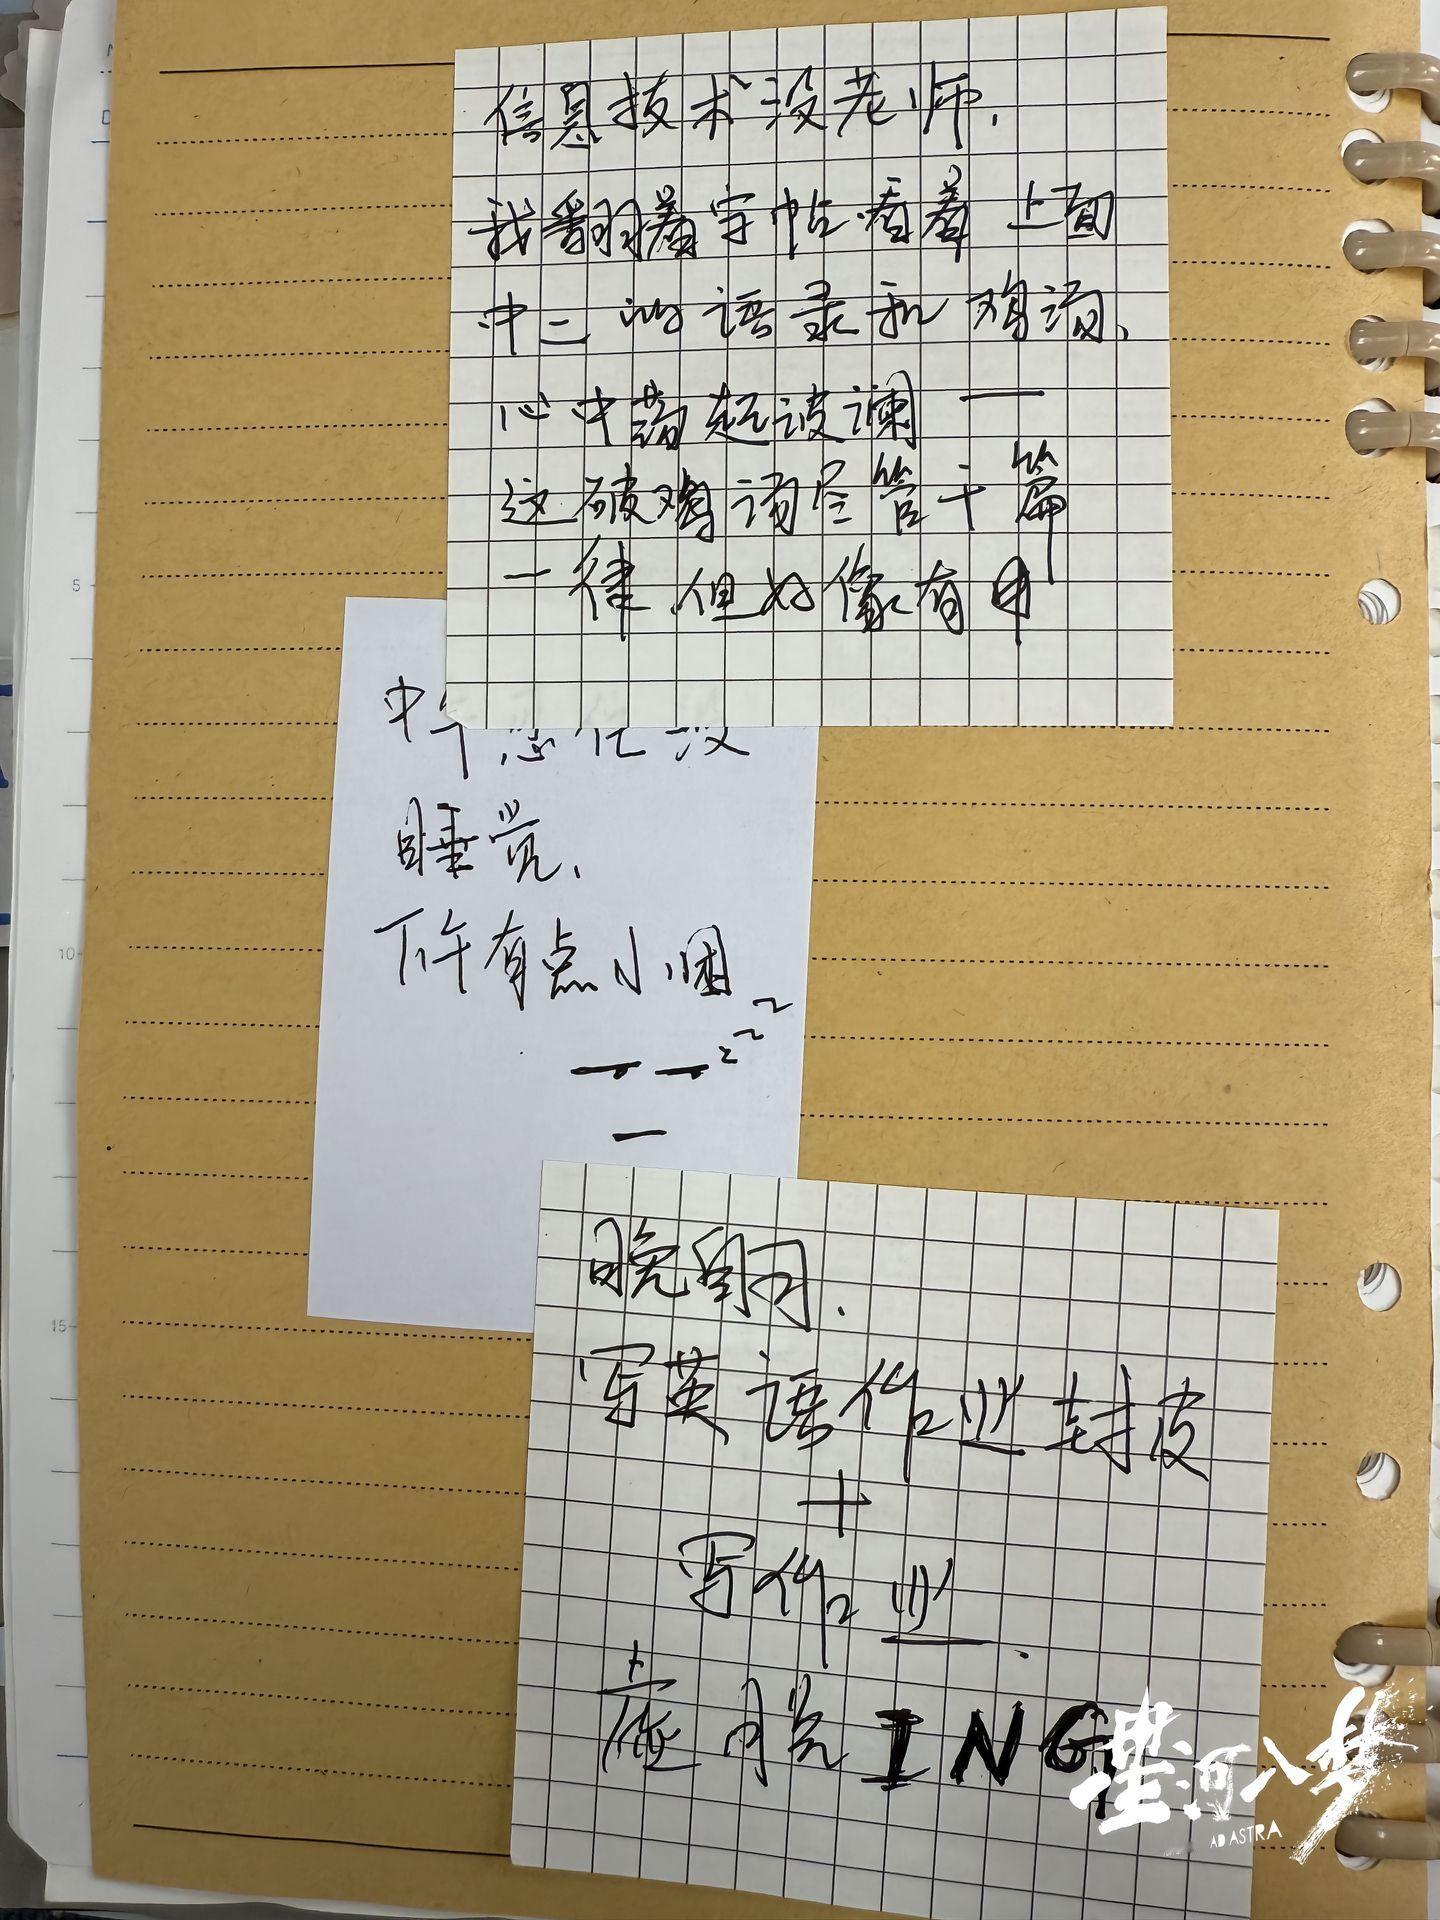 信息技术没老师.
我翻着字帖看着上面
中二的语录和鸡汤、
心中荡起波澜——
这破鸡汤尽管千篇
一律,但好像有用
中午
睡觉、
下午有点小困
zzz
晚自习.
写英语作业封皮
+
写作业.
ING
星河入梦
AD ASTRA
5
10
15